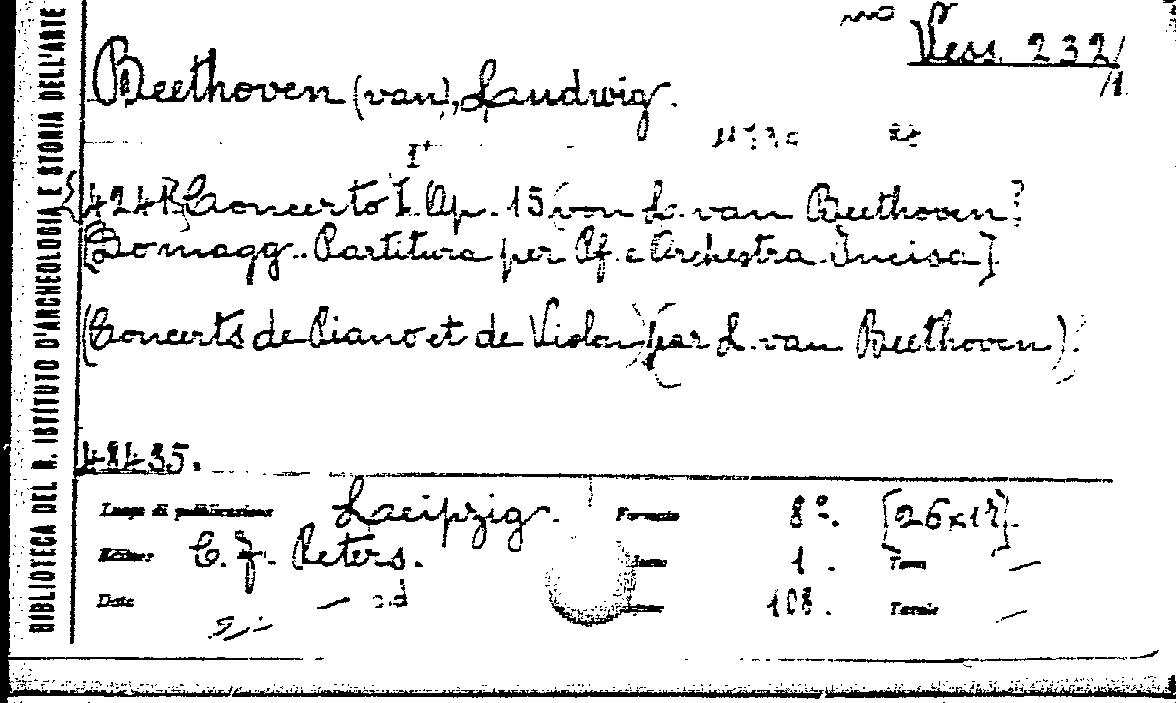 BIBLIOTECA DEL R. ISTITUTO D'ARCHEOLOGIA E STORIA DELL'ARTE
Vess. 232/1
Beethoven (van), Laudwig.
I°
Concerto I. Op. 15 von L. van Beethoven
Do magg. Partitura per Pf. e Orchestra Incisa]
(Concerts de Piano et de Violon) (par L. van Beethoven).
48435.
Luogo di pubblicazione Laeipzig. Formato 8°. [26x17].
Editore C. F. Peters. 1. Tomi —
Data — s.d 108. Tavole —